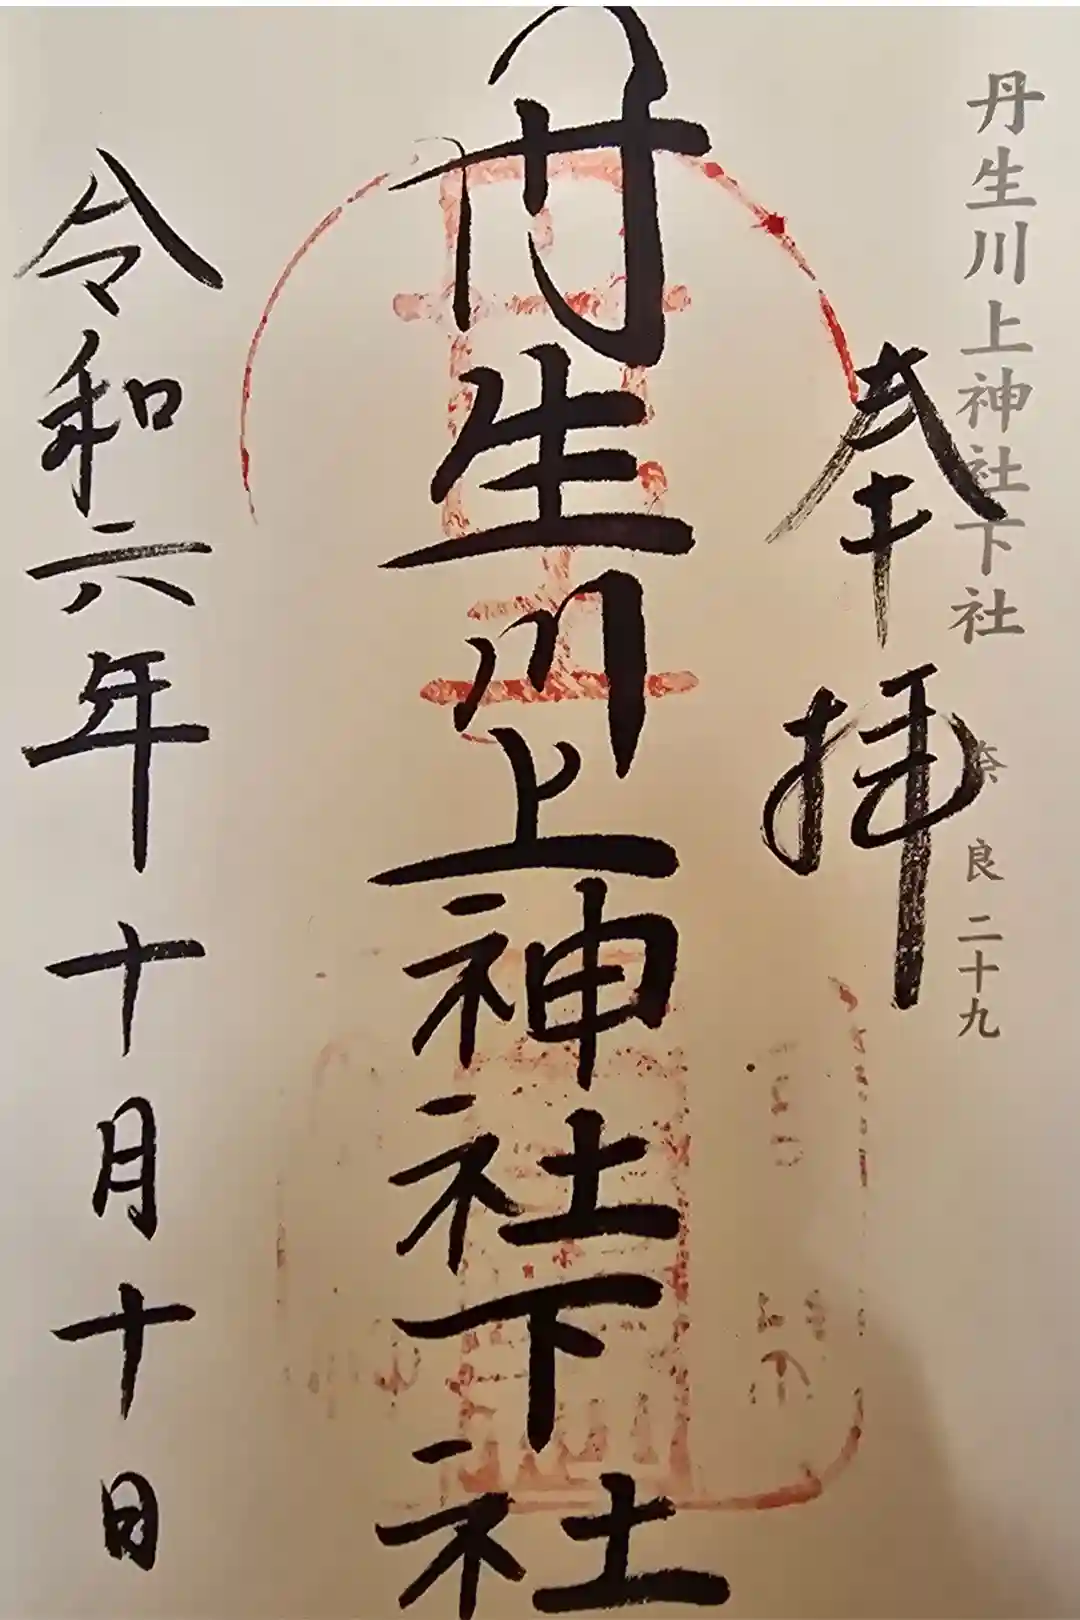 丹生川上神社下社
奈良二十九
奉拝
丹生川上神社下社
令和六年十月十日